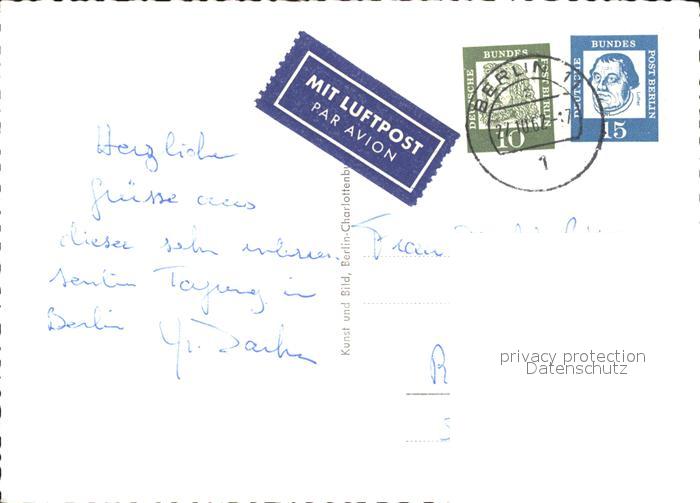 MIT LUFTPOST
PAR AVION
DEUTSCHE BUNDES POST BERLIN
10
DEUTSCHE BUNDES POST BERLIN
Luther
15
BERLIN 1
1
Herzliche
Grüsse aus
dieser sehr interes-
santen Tagung in
Berlin
Frau
Kunst und Bild, Berlin-Charlottenbu
privacy protection
Datenschutz